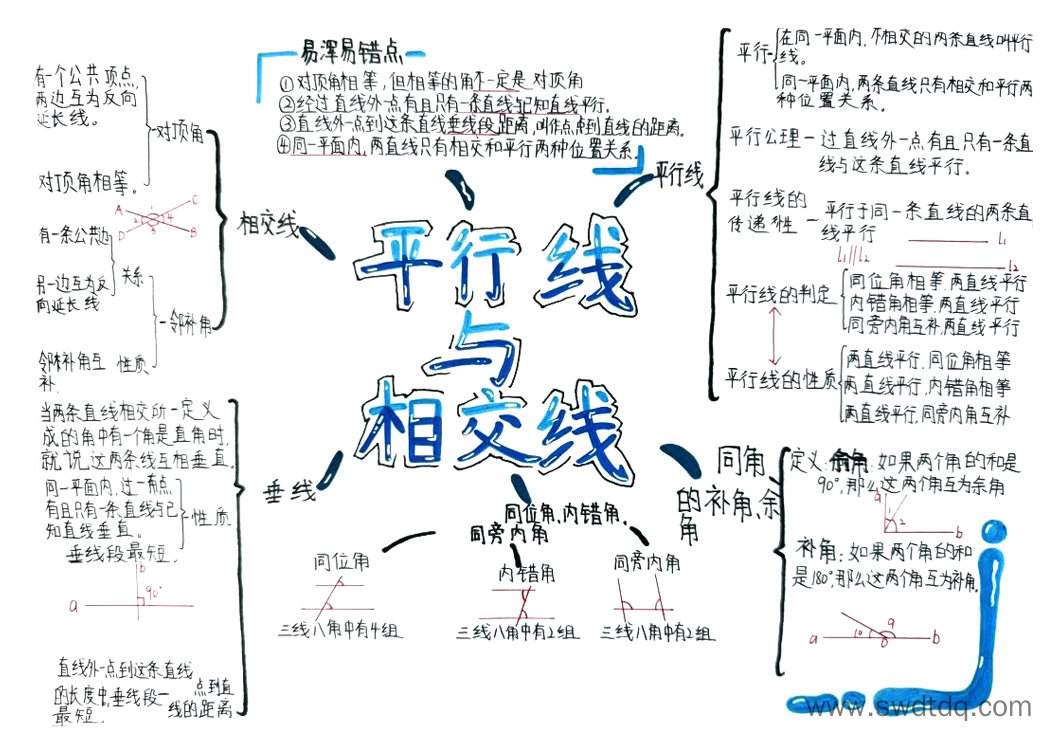 平行线
与
相交线
易浑易错点
①对顶角相等，但相等的角不一定是对顶角
②经过直线外一点有且只有一条直线与已知直线平行.
③直线外一点到这条直线垂线段距离,叫作点点到直线的距离.
④同一平面内,两直线只有相交和平行两种位置关系.
相交线
对顶角
有一个公共顶点,
两边互为反向
延长线。
对顶角相等。
A
C
D
B
1
2
3
4
邻补角
关系
有一条公共边
另一边互为反
向延长线
性质
邻补角互
补.
垂线
当两条直线相交所一定义
成的角中有一个角是直角时,
就说这两条线互相垂直.
同一平面内,过一点
有且只有一条直线与已
知直线垂直。
性质
垂线段最短.
b
90°
a
直线外一点到这条直线
的长度中,垂线段一
最短。
点到直
线的距离
同位角,内错角,
同旁内角
同位角
三线八角中有4组
内错角
三线八角中有2组
同旁内角
三线八角中有2组
平行线
平行
在同一平面内,不相交的两条直线叫平行
线。
同一平面内,两条直线只有相交和平行两
种位置关系.
平行公理一过直线外一点有且只有一条直
线与这条直线平行.
平行线的
传递性
平行于同一条直线的两条直
线平行
l₁//l₂
l₁
l₂
平行线的判定
同位角相等,两直线平行
内错角相等,两直线平行
同旁内角互补,两直线平行
平行线的性质
两直线平行,同位角相等
两直线平行,内错角相等
两直线平行,同旁内角互补
同角
的补角、余
角
定义:
余角:如果两个角的和是
90°,那么这两个角互为余角
a
1
2
b
补角:如果两个角的和
是180°,那么这两个角互为补角.
a
b
www.swdtdq.com